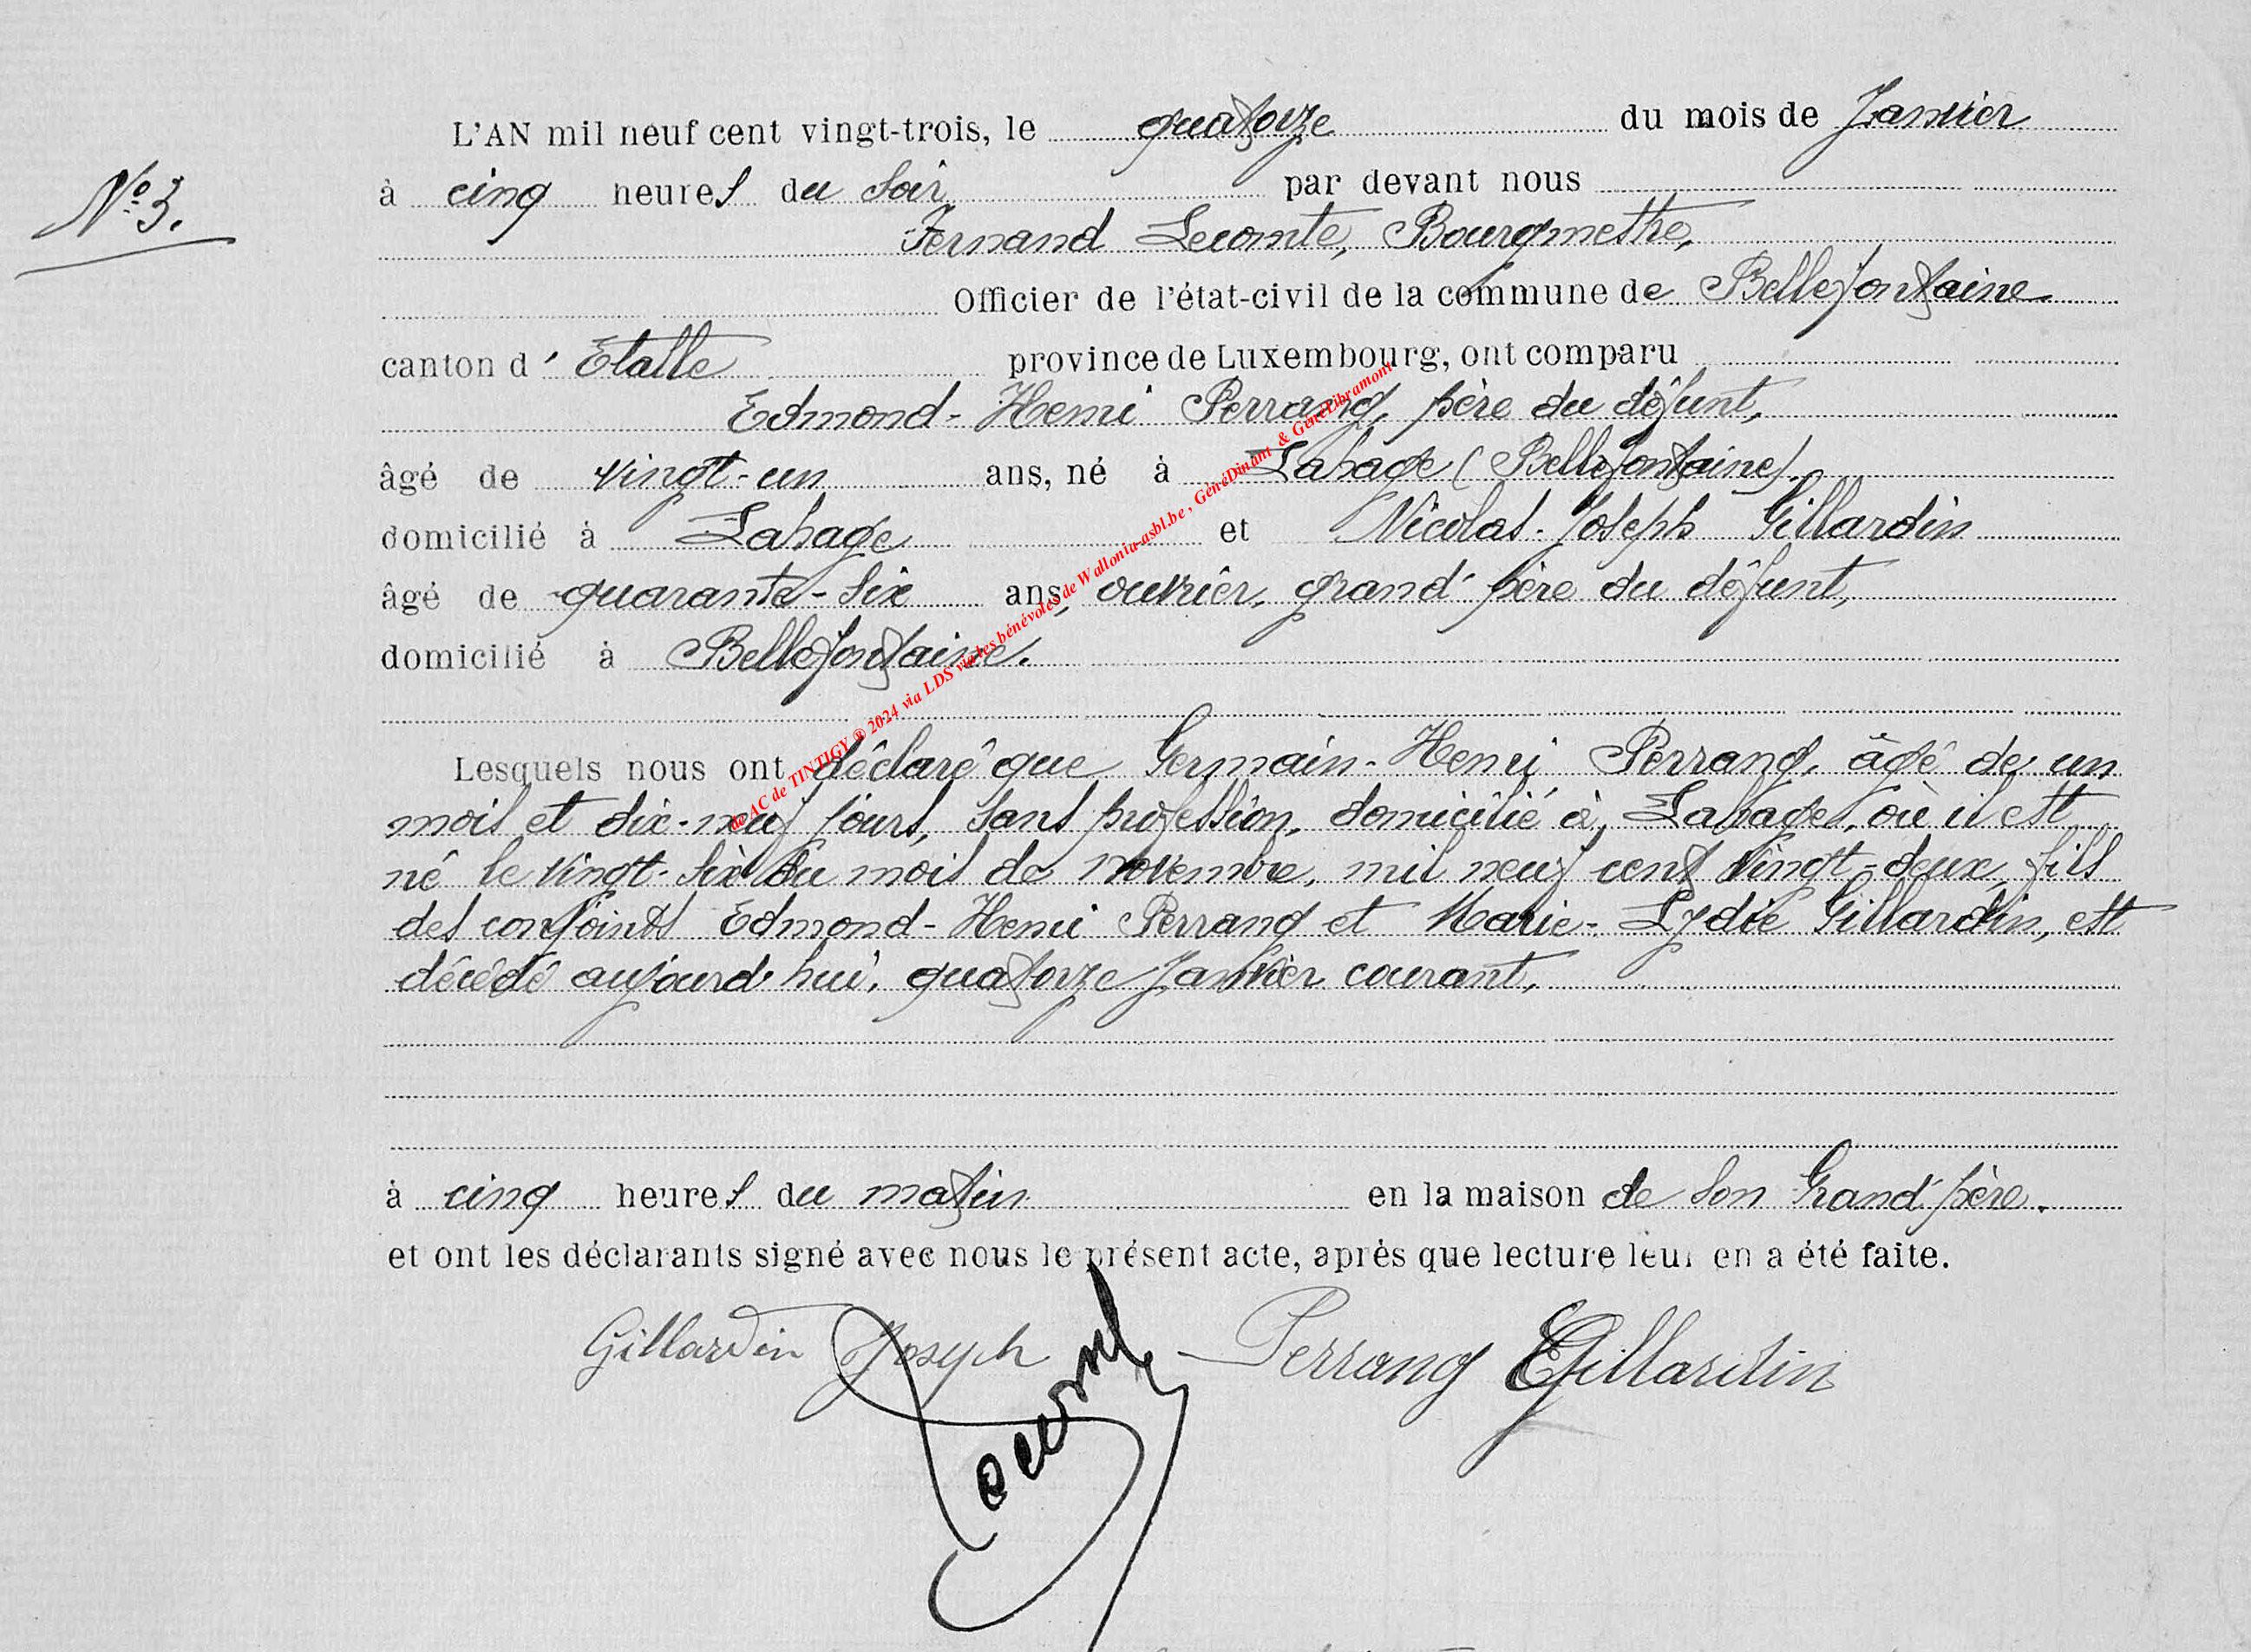 L'AN mil neuf cent vingt-trois, le quatorze du mois de Janvier
N° 3.
à cinq heures du soir par devant nous
Fernand Lecomte, Bourgmestre,
Officier de l'état-civil de la commune de Bellefontaine
canton d' Etalle province de Luxembourg, ont comparu
Edmond-Henri Perrang, père du défunt,
âgé de vingt-un ans, né à Lahage (Bellefontaine),
domicilié à Lahage et Nicolas-Joseph Gillardin
âgé de quarante-six ans, ouvrier, grand'père du défunt,
domicilié à Bellefontaine.
Lesquels nous ont déclaré que Germain-Henri Perrang, âgé de un
mois et dix-neuf jours, sans profession, domicilié à Lahage, où il est
né le vingt-six du mois de novembre, mil neuf cent vingt-deux, fils
des conjoints Edmond-Henri Perrang et Marie-Lydie Gillardin, est
décédé aujourd'hui, quatorze Janvier courant,
à cinq heures du matin en la maison de son Grand'père.
et ont les déclarants signé avec nous le présent acte, après que lecture leur en a été faite.
Gillardin Joseph Perrang E Gillardin
Lecomte
de AC de TINTIGY ® 2024 via LDS via les bénévoles de Wallonia-asbl.be , GénéDinant & GénéLibramont